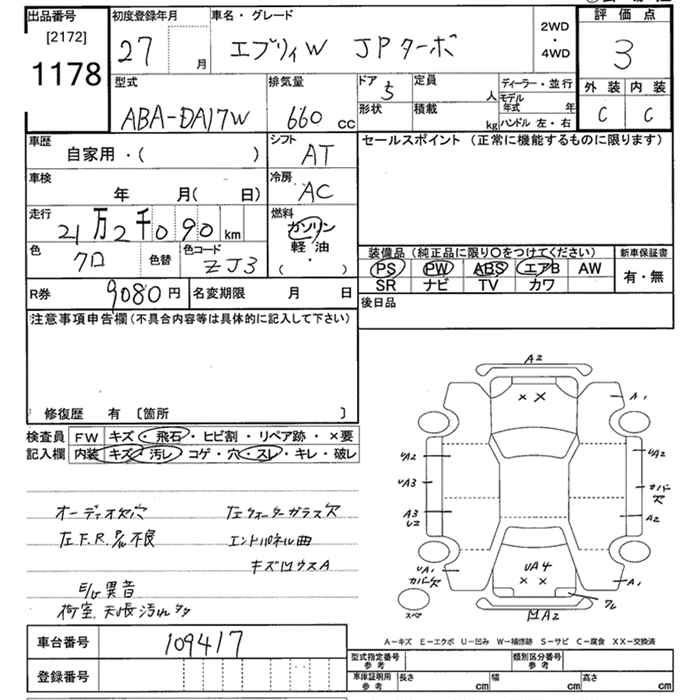 出品番号
[2172]
1178
初度登録年月
27 月
車名・グレード
エブリィW JPターボ
2WD
・
4WD
評価点
3
外装 内装
C C
型式
ABA-DA17W
排気量
660 cc
ドア 5
形状
定員 人
積載 kg
ディーラー・並行
モデル年式 年
ハンドル 左・右
車歴
自家用・( )
シフト
AT
セールスポイント (正常に機能するものに限ります)
車検
年 月( 日)
冷房
AC
走行
21万2千090km
燃料
ガソリン
軽油
・
( )
色
クロ
色替
色コード
ZJ3
装備品(純正品に限り○をつけてください)
PS PW ABS エアB AW
SR ナビ TV カワ
新車保証書
有・無
R券 9080円
名変期限 月 日
後日品
注意事項申告欄(不具合内容等は具体的に記入して下さい)
修復歴 有 〔箇所 〕
検査員
記入欄
FW キズ・飛石・ヒビ割・リペア跡・×要
内装 キズ・汚レ・コゲ・穴・スレ・キレ・破レ
オーディオ欠穴 左クォーターガラス欠
左F.R.PW不良 エンドパネル曲
キズMウスA
E/G異音
荷室、天張汚れ多
A2
A1
UA2
UA3
A3
UA2
カバー欠
A2
UA1
カバー欠
UA4
A1
ワレ
MA2
スペア
A－キズ E－エクボ U－凹み W－補修跡 S－サビ C－腐食 XX－交換済
車台番号 109417
登録番号
型式指定番号
参考
類別区分番号
参考
車庫証明用
参考
長さ cm 幅 cm 高さ cm